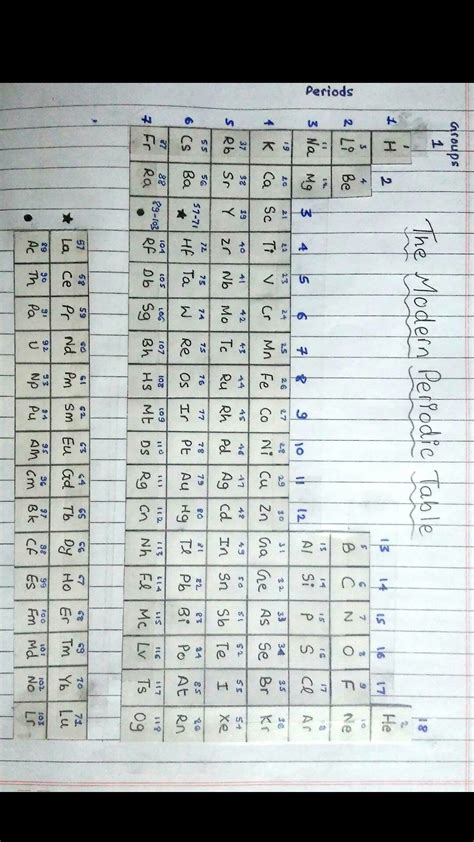 The Modern Periodic Table
Groups
1 2 3 4 5 6 7 8 9 10 11 12 13 14 15 16 17 18
Periods
1 2
1 H He
3 4 5 6 7 8 9 10
2 Li Be B C N O F Ne
11 12 13 14 15 16 17 18
3 Na Mg Al Si P S Cl Ar
19 20 21 22 23 24 25 26 27 28 29 30 31 32 33 34 35 36
4 K Ca Sc Ti V Cr Mn Fe Co Ni Cu Zn Ga Ge As Se Br Kr
37 38 39 40 41 42 43 44 45 46 47 48 49 50 51 52 53 54
5 Rb Sr Y Zr Nb Mo Tc Ru Rh Pd Ag Cd In Sn Sb Te I Xe
55 56 57-71 72 73 74 75 76 77 78 79 80 81 82 83 84 85 86
6 Cs Ba ★ Hf Ta W Re Os Ir Pt Au Hg Tl Pb Bi Po At Rn
87 88 89-103 104 105 106 107 108 109 110 111 112 113 114 115 116 117 118
7 Fr Ra ● Rf Db Sg Bh Hs Mt Ds Rg Cn Nh Fl Mc Lv Ts Og
57 58 59 60 61 62 63 64 65 66 67 68 69 70 71
★ La Ce Pr Nd Pm Sm Eu Gd Tb Dy Ho Er Tm Yb Lu
89 90 91 92 93 94 95 96 97 98 99 100 101 102 103
● Ac Th Pa U Np Pu Am Cm Bk Cf Es Fm Md No Lr